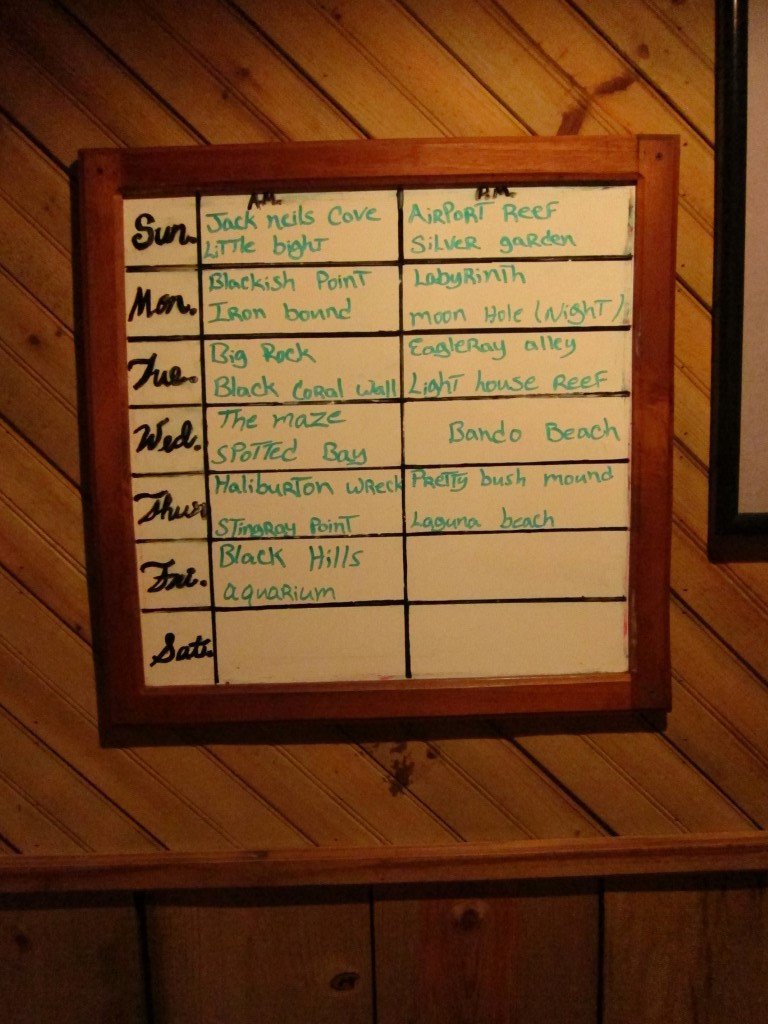 A.M. P.M.
Sun. Jack neils Cove AiRPORT Reef
LiTTle bighT SiLVeR gaRden
Mon. Blackish PoinT LabyRinTh
IRon bound moon Hole (NighT)
Tue. Big Rock EagleRay alley
Black CoRal Wall LighT house ReeF
Wed. The maze Bando Beach
SPoTTed Bay
Thur. HalibuRTon wReck PReTTy bush mound
STingRay PoinT Laguna beach
Fri. Black Hills
aquaRium
Sat.